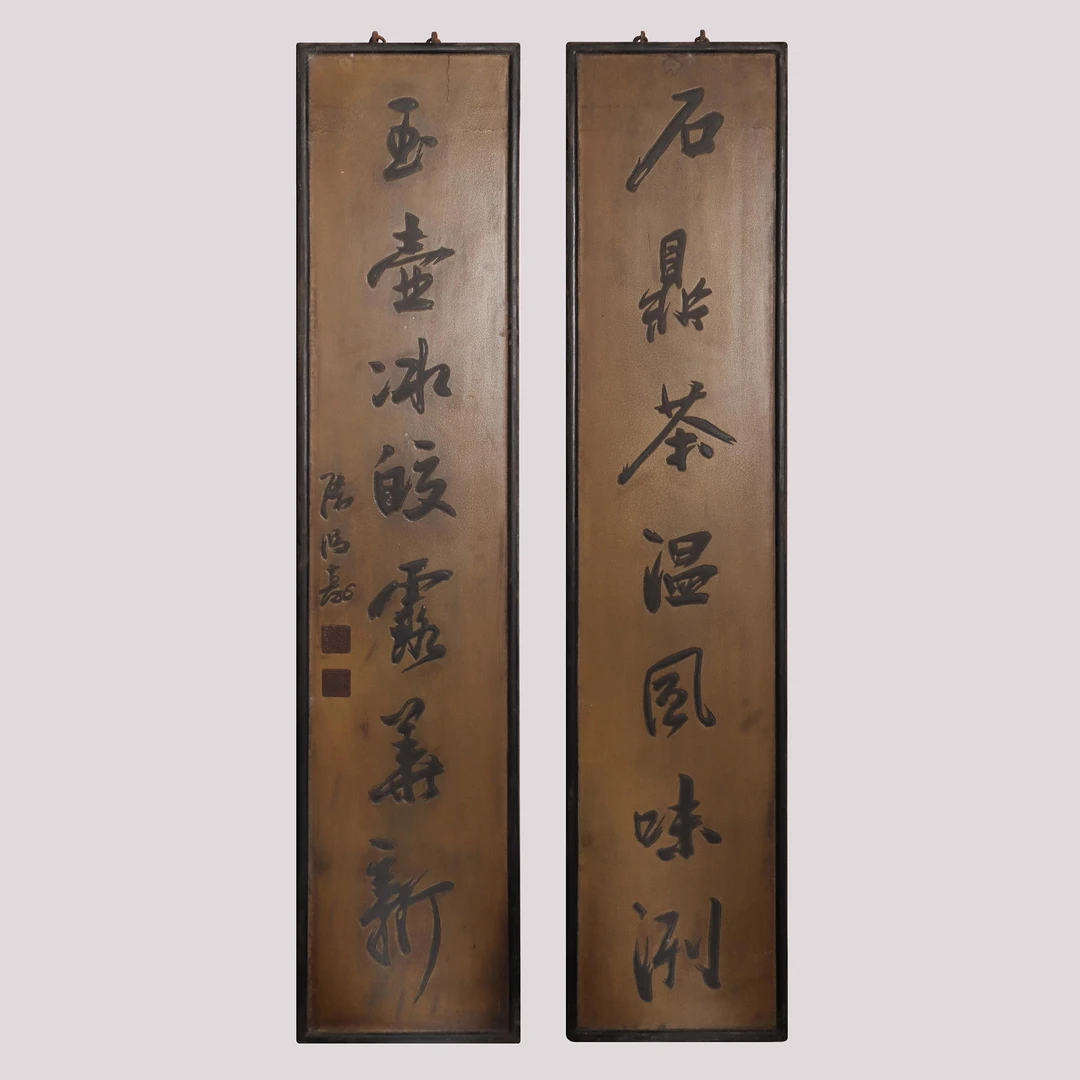 石鼎茶温風味洌
玉壺冰皎露華新